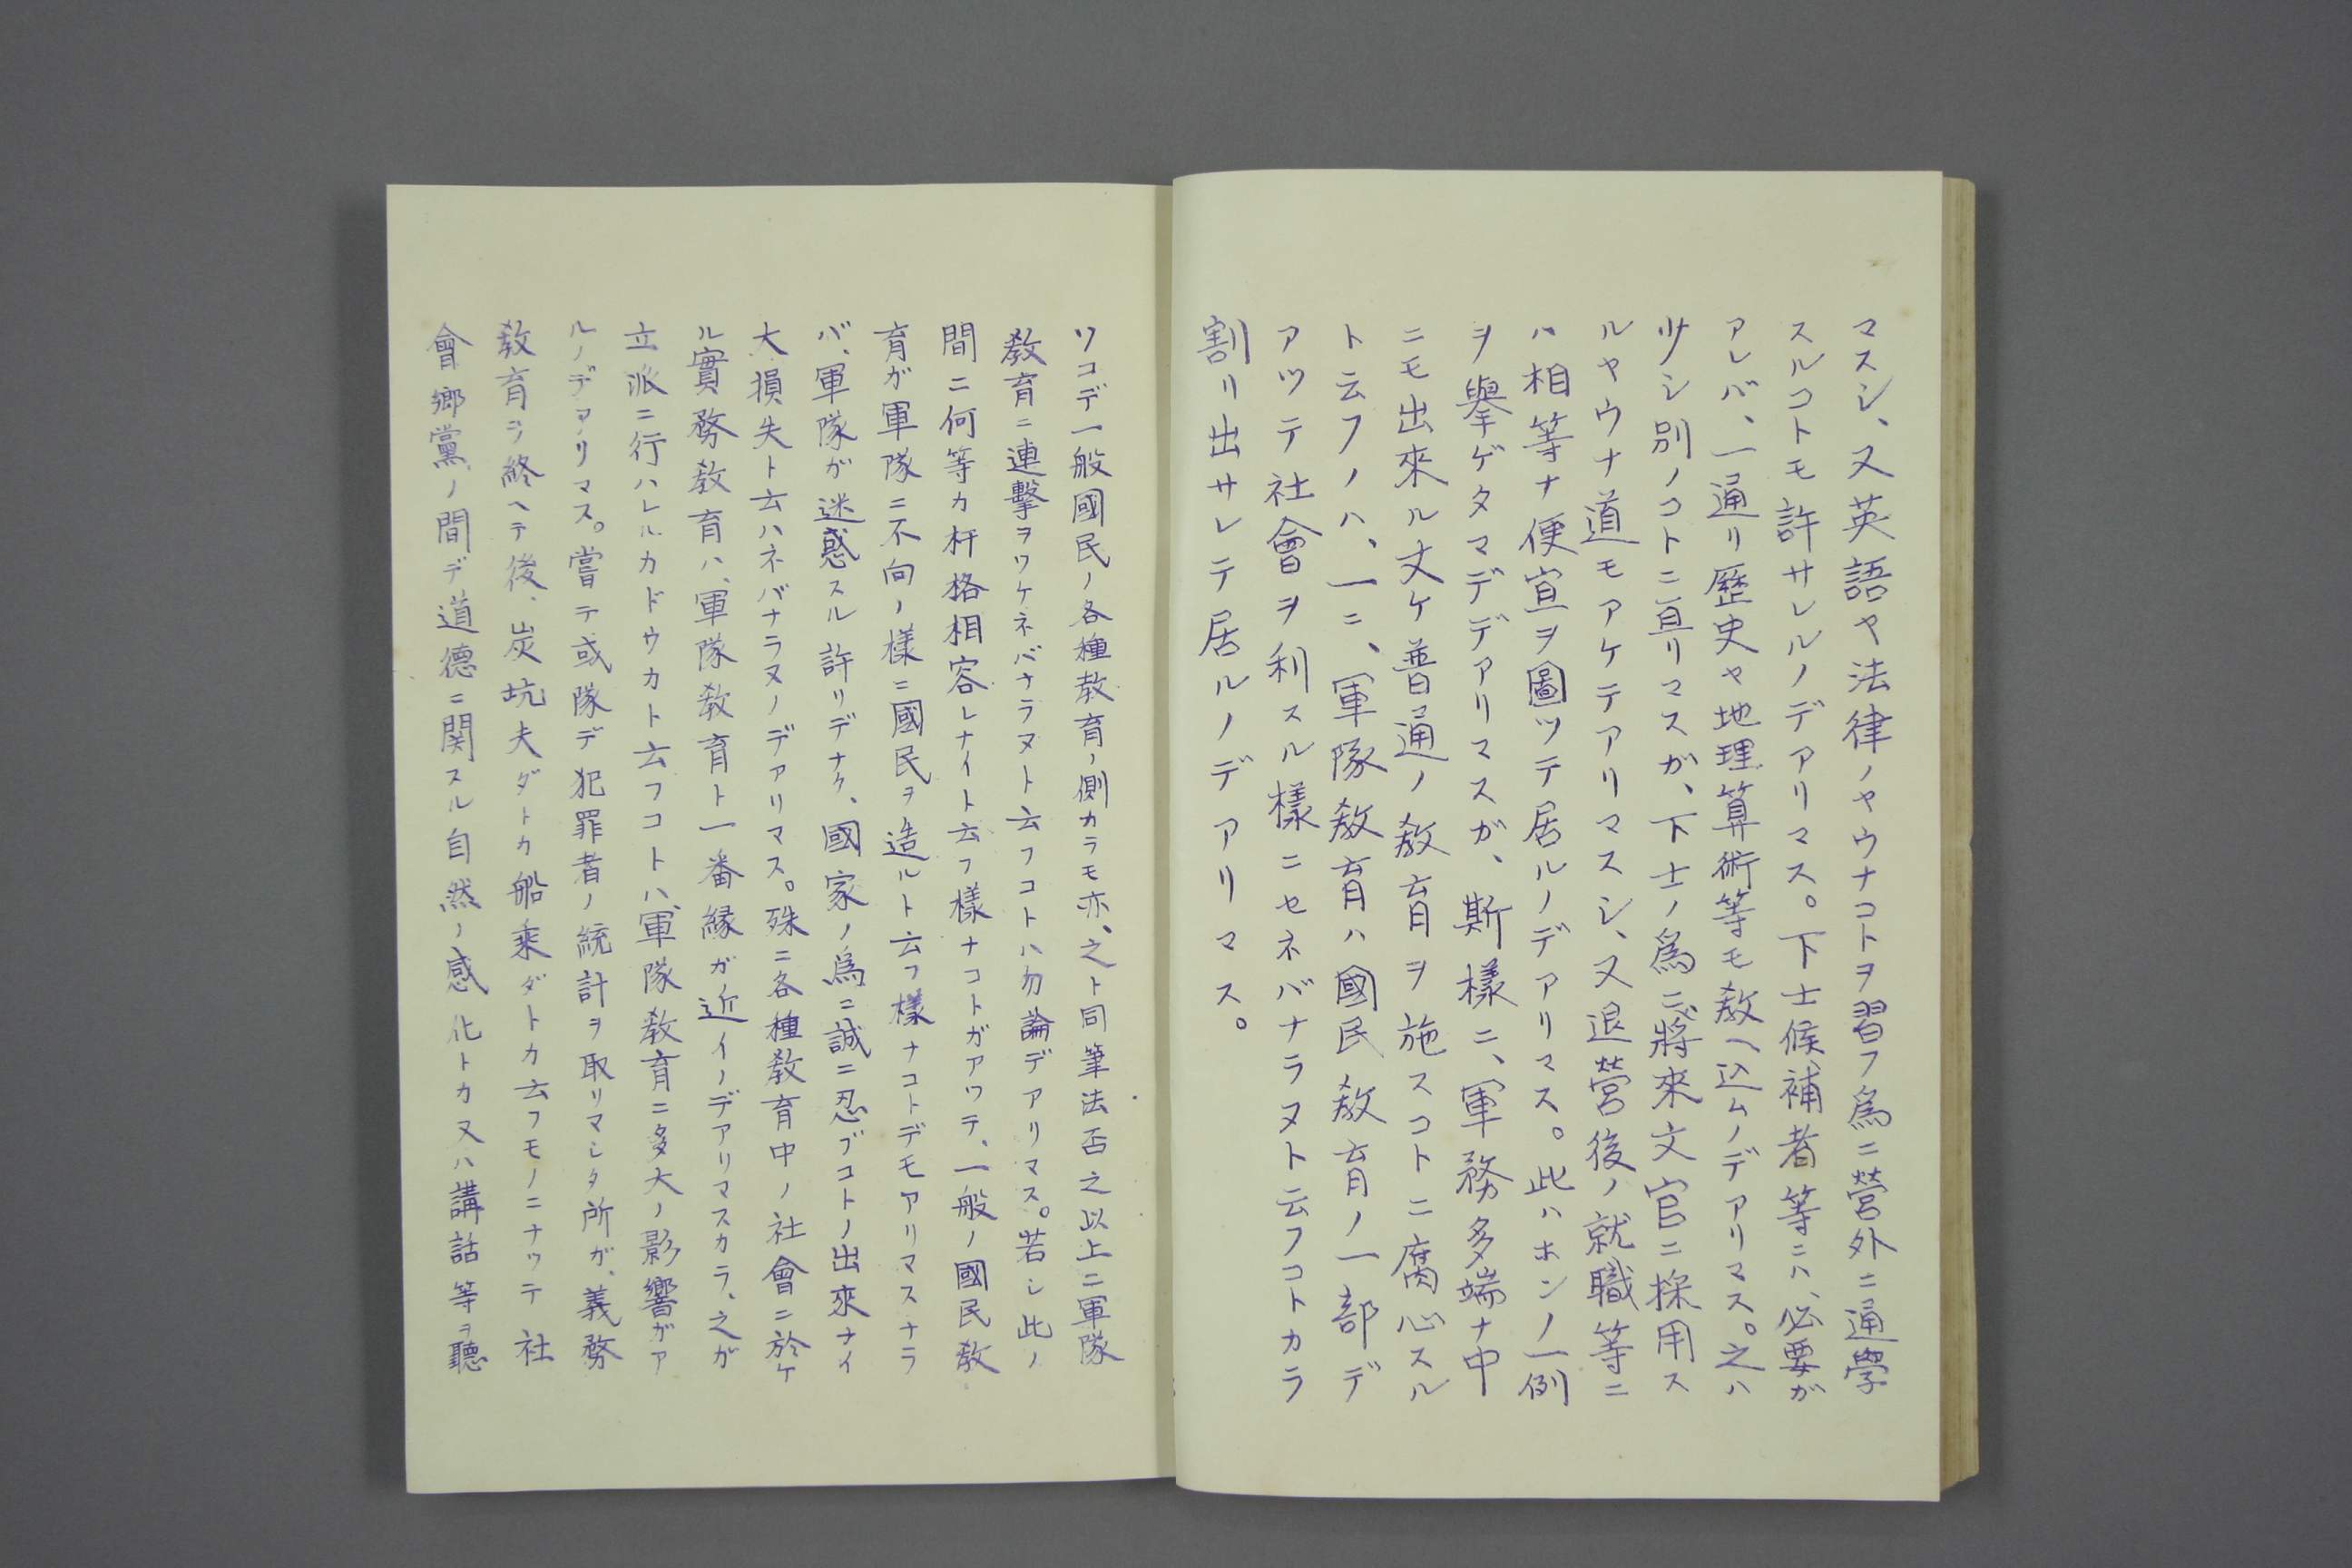 マスシ、又英語ヤ法律ノヤウナコトヲ習フ爲ニ營外ニ通學
スルコトモ許サレルノデアリマス。下士候補者等ニハ、必要ガ
アレバ、一通リ歴史ヤ地理算術等モ敎ヘ込ムノデアリマス。之ハ
少シ別ノコトニ亘リマスガ、下士ノ爲ニ將來文官ニ採用ス
ルヤウナ道モアケテアリマスシ、又退營後ノ就職等ニ
ハ相等ナ便宜ヲ圖ツテ居ルノデアリマス。此ハホンノ一例
ヲ擧ゲタマデデアリマスガ、斯樣ニ、軍務多端ナ中
ニモ出來ル丈ケ普通ノ敎育ヲ施スコトニ腐心スル
ト云フノハ、一ニ、軍隊敎育ハ國民敎育ノ一部デ
アツテ社會ヲ利スル樣ニセネバナラヌト云フコトカラ
割リ出サレテ居ルノデアリマス。
ソコデ一般國民ノ各種敎育ノ側カラモ亦、之ト同筆法否之以上ニ軍隊
敎育ニ連擊ヲツケネバナラヌト云フコトハ勿論デアリマス。若シ此ノ
間ニ何等カ杆格相容レナイト云フ樣ナコトガアツテ、一般ノ國民敎
育ガ軍隊ニ不向ノ樣ニ國民ヲ造ルト云フ樣ナコトデモアリマスナラ
バ、軍隊ガ迷惑スル許リデナク、國家ノ爲ニ誠ニ忍ブコトノ出來ナイ
大損失ト云ハネバナラヌノデアリマス。殊ニ各種敎育中ノ社會ニ於ケ
ル實務敎育ハ、軍隊敎育ト一番緣ガ近イノデアリマスカラ、之ガ
立派ニ行ハレルカドウカト云フコトハ、軍隊敎育ニ多大ノ影響ガア
ルノデアリマス。嘗テ或隊デ犯罪者ノ統計ヲ取リマシタ所ガ、義務
敎育ヲ終ヘテ後、炭坑夫ダトカ船乘ダトカ云フモノニナツテ社
會鄕黨ノ間デ道德ニ関スル自然ノ感化トカ又ハ講話等ヲ聽